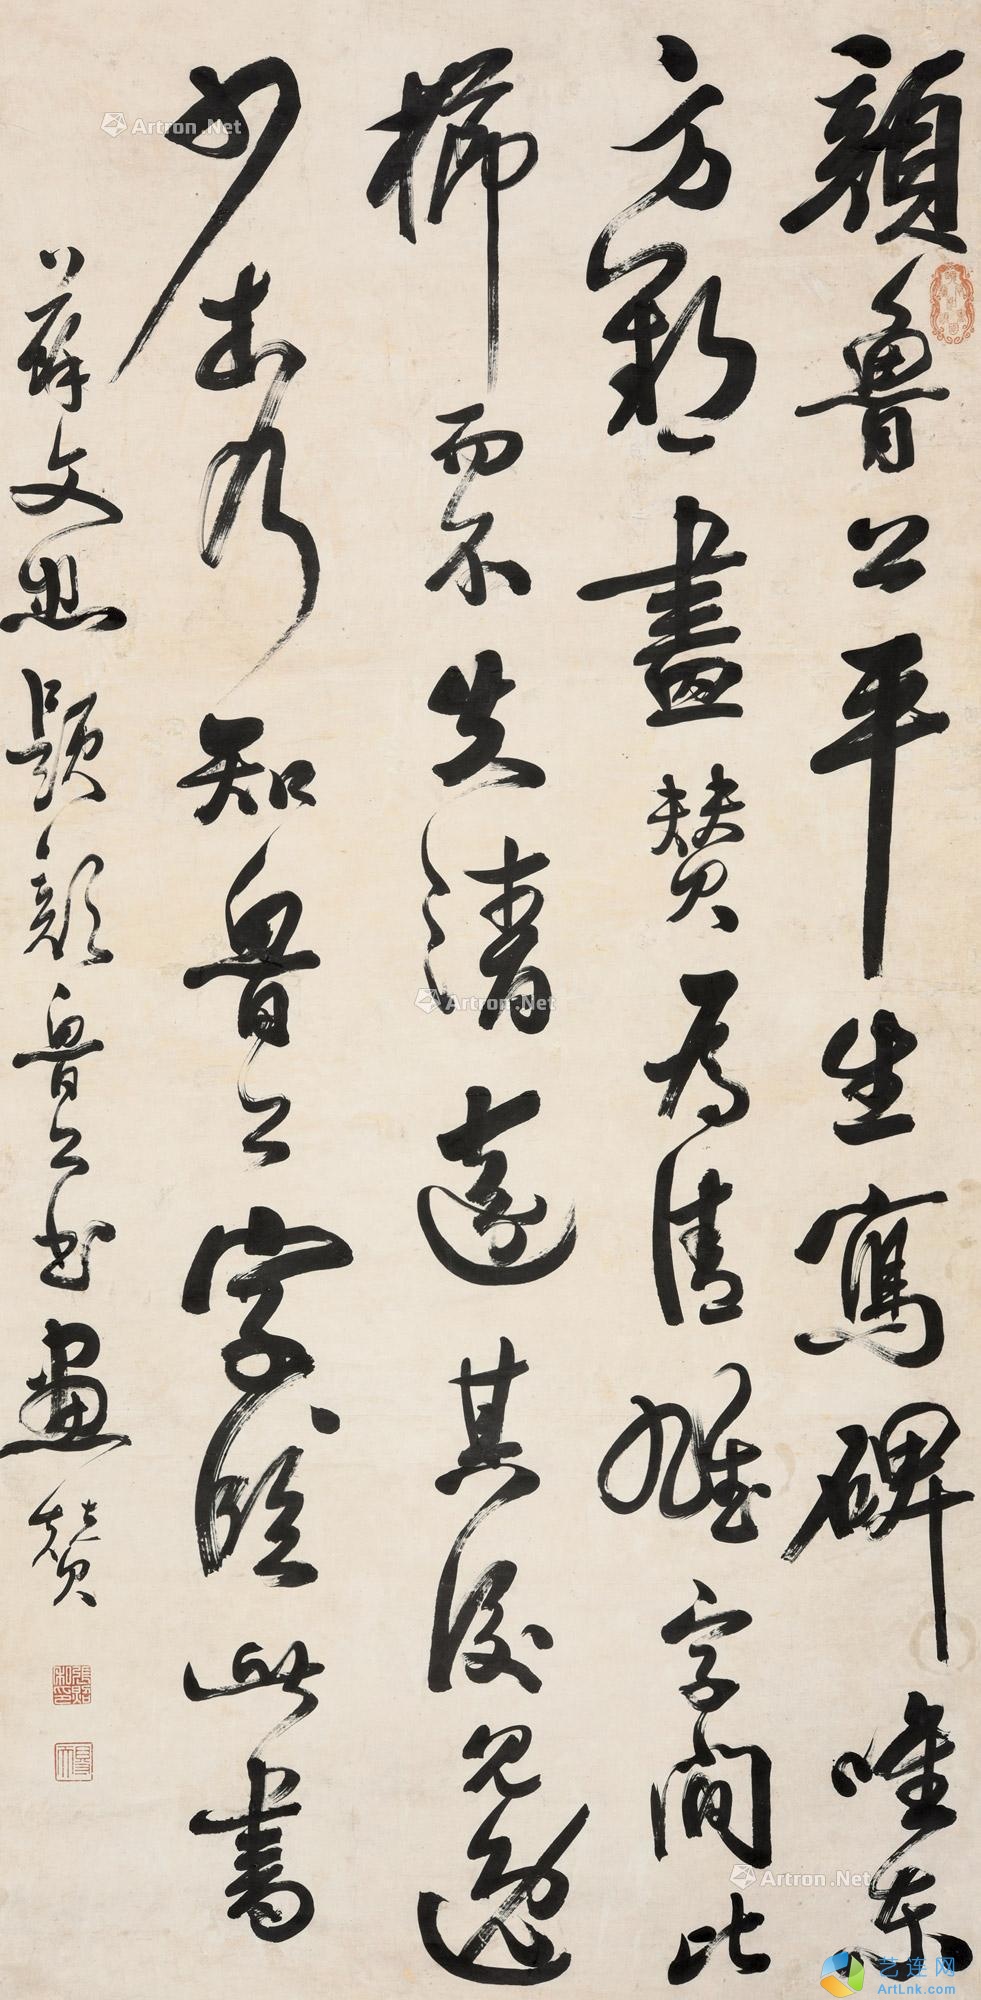 顏魯公平生寫碑唯東
方朔畫贊為清雄字間比
櫛而不失清遠其後見逸
少本乃知魯公字字臨此書
蘇文忠題顏魯公書畫贊
張照私印
Artron.Net
Artron.Net
Artron.Net
艺连网
ArtLnk.com